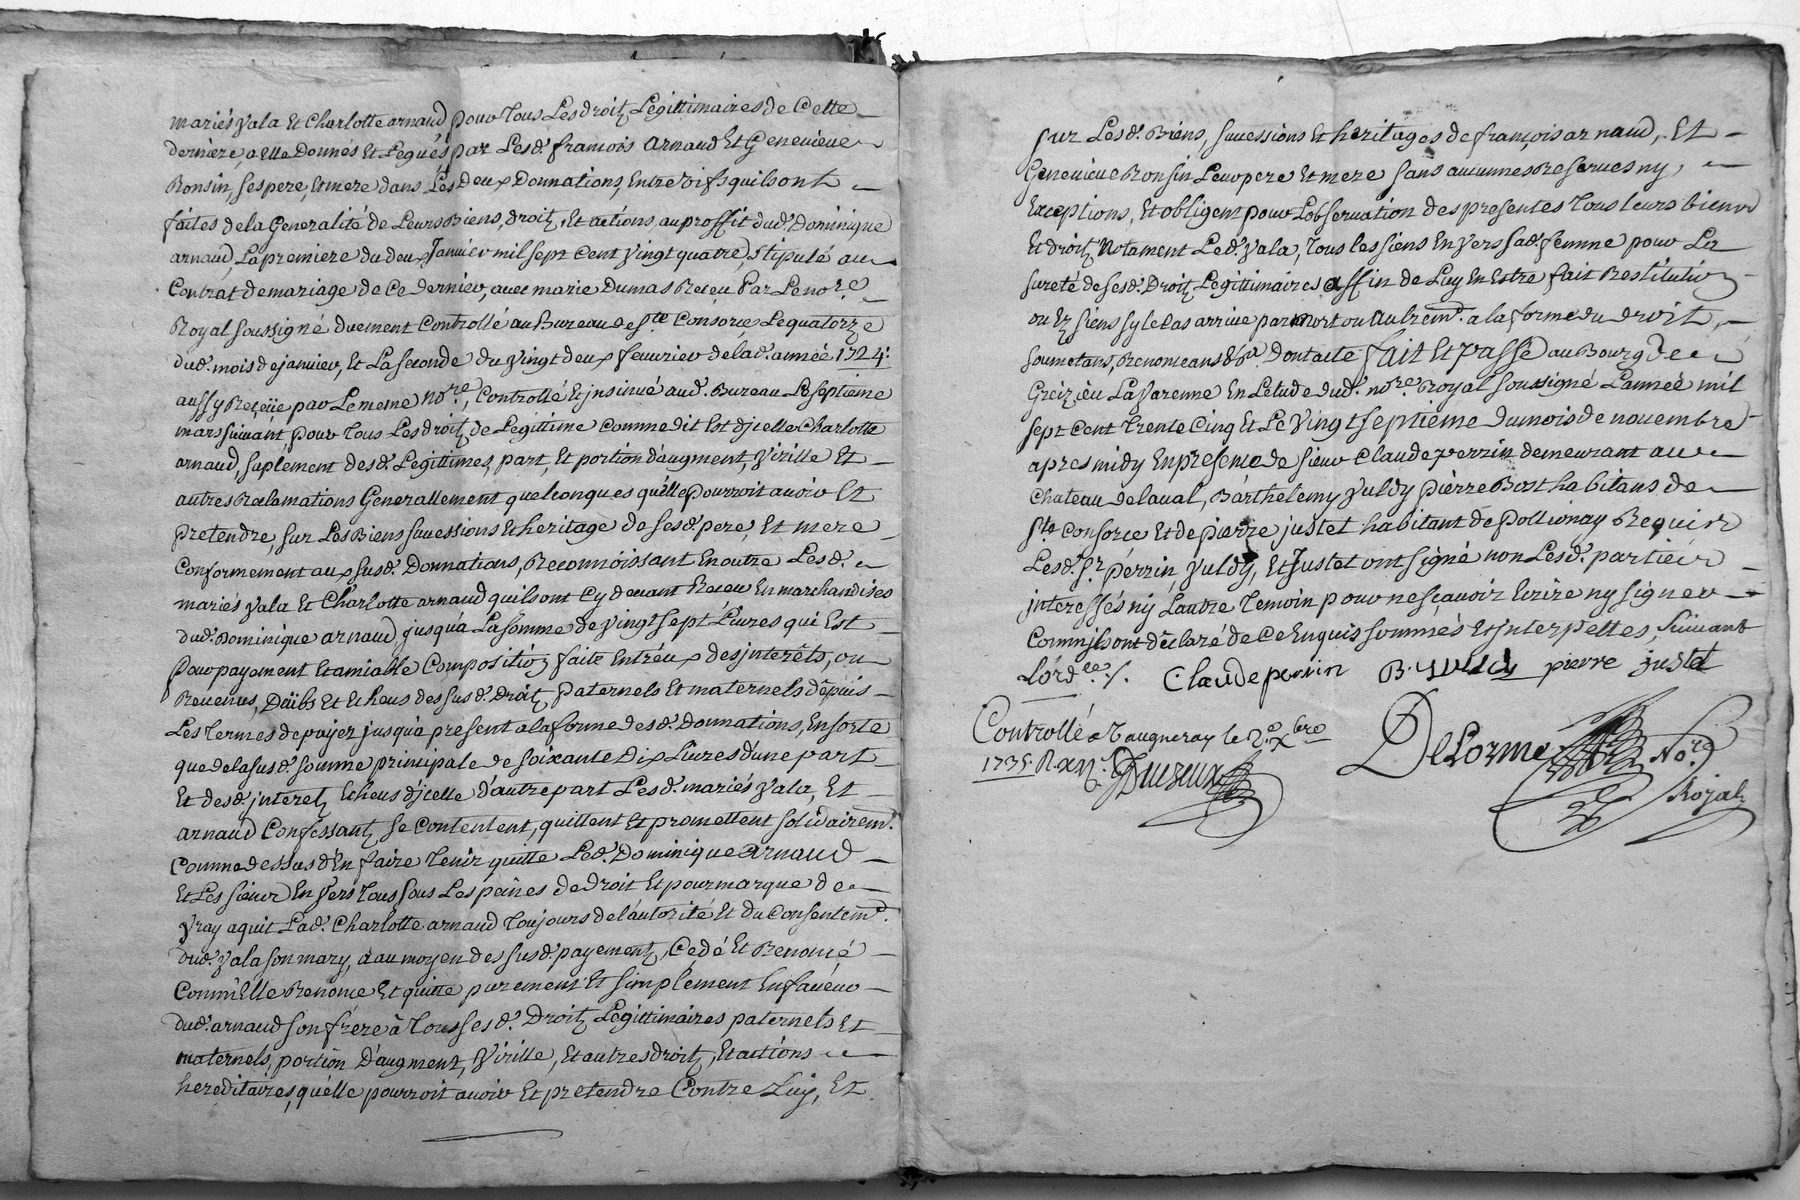 mariés yala Et Charlotte arnaud pour Tous Les droitz Légittimaires de Cette
derniere, a Elle Donnés Et Légués par Lesd. francois Arnaud Et Genevieve
Ronsin, Ses pere, Et mere dans Les Deux Donnations, Entre vifs quils ont
faites de la Generalité de Leurs Biens, droitz, Et actions, au proffit dud. Dominique
arnaud, La premiere du deux Janvier mil sept Cent Vingt quatre, Stipulé au
Contrat de mariage de Ce dernier, avec marie Dumas Receu Par Le no.re
Royal soussigné duement Controllé au Bureau de Ste Consorce Le quatorze
dud. mois de janvier, Et La seconde du vingt deux fevrier de lad. année 1724.
aussy Receüe par Le meme No.re, Controllé Et jnsinué aud. Bureau Le septieme
mars suivant, pour Tous Les droitz de Legittime Comme dit Est d'jcelle Charlotte
arnaud, suplement desd. Legittimes, part, Et portion d'augment, Virille Et
autres Reclamations Generallement quelconques qu'elle pourroit avoir Et
pretendre, sur Les Biens successions Et heritage de sesd. pere, Et mere
Conformement aux susd. Donnations, Reconnoissant En outre Lesd.
mariés yala Et Charlotte arnaud quils ont Cy devant Receu En marchandises
dud. Dominique arnaud jusqua La somme de vingt sept Livres qui Est
pour payement Et amiable Composition faite Entreux des jnterêts, ou
Revenus, Dûbs Et Echeus des susd. Droitz paternels Et maternels depuis
Les Termes de payer jusqua present a la forme desd. Donnations, En sorte
que de la susd. somme principale de soixante Dix Livres d'une part
Et desd. jnteretz Echeus d'jcelle d'autre part Lesd. mariés yala, Et
arnaud Confessantz se Contentent, quittent Et promettent solidairemt.
Comme dessus d'En faire Tenir quitte Led. Dominique Arnaud
Et Les siens Envers Tous sous Les peines de droit Et pour marque de
vray aquit Lad. Charlotte arnaud Toujours de l'autorité Et du Consentemt.
dud. yala son mary, a au moyen des susd. payementz, Cedé Et Renoncé
Comm'Elle Renonce Et quitte purement Et simplement En faveur
dud. arnaud son frere à Tous sesd. Droitz Légittimaires paternels Et
maternels, portion D'augment, Virille, Et autres droitz, Et actions
hereditaires, qu'elle pourroit avoir Et pretendre Contre Luy, Et
sur Lesd. Biens, successions Et heritages de francois arnaud, Et
Genevieve Ronsin Leur pere Et mere sans aucunnes Reserves ny
Exceptions, Et obligent pour L'observation des presentes Tous leurs biens
Et droitz Notament Led. yala, Tous les siens Envers sad. femme pour La
sureté de sesd. Droitz Legittimaires affin de Luy En Estre fait Restitution
ou Ez siens sy le Cas arrive par mort ou Autremt. a la forme du droit,
soumotans, Renonceans &.a Dont acte fait Et passé au Bourg de
Greizieu La Varenne En L'etude dud. no.re Royal soussigné L'année mil
sept Cent Trente Cinq Et Le Vingt septieme du mois de novembre
apres midy En presence de sieur Claude perrin demeurant au
Chateau de laval, Barthelemy yuldy pierre Bost habitans de
S.te Consorce Et de pierre justet habitant de Pollionay Requis
Lesd. S.r perrin, yuldy, Et Justet ont signé non Lesd. parties
jnteressés ny L'autre Temoin pour ne sçavoir Ecrire ny signer
Comm'jls ont déclaré de Ce Enquis sommés Et jnterpellés, suivant
L'ord.ce /. Claude perrin B. yuldy pierre justet
Controllé a Vaugneray le 2.e Xbre
1735. R. DeLorme No.re
Royal